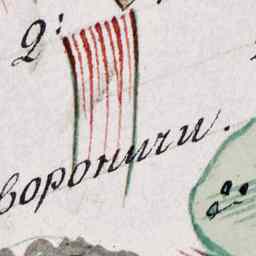 2:
вороничи.
2.